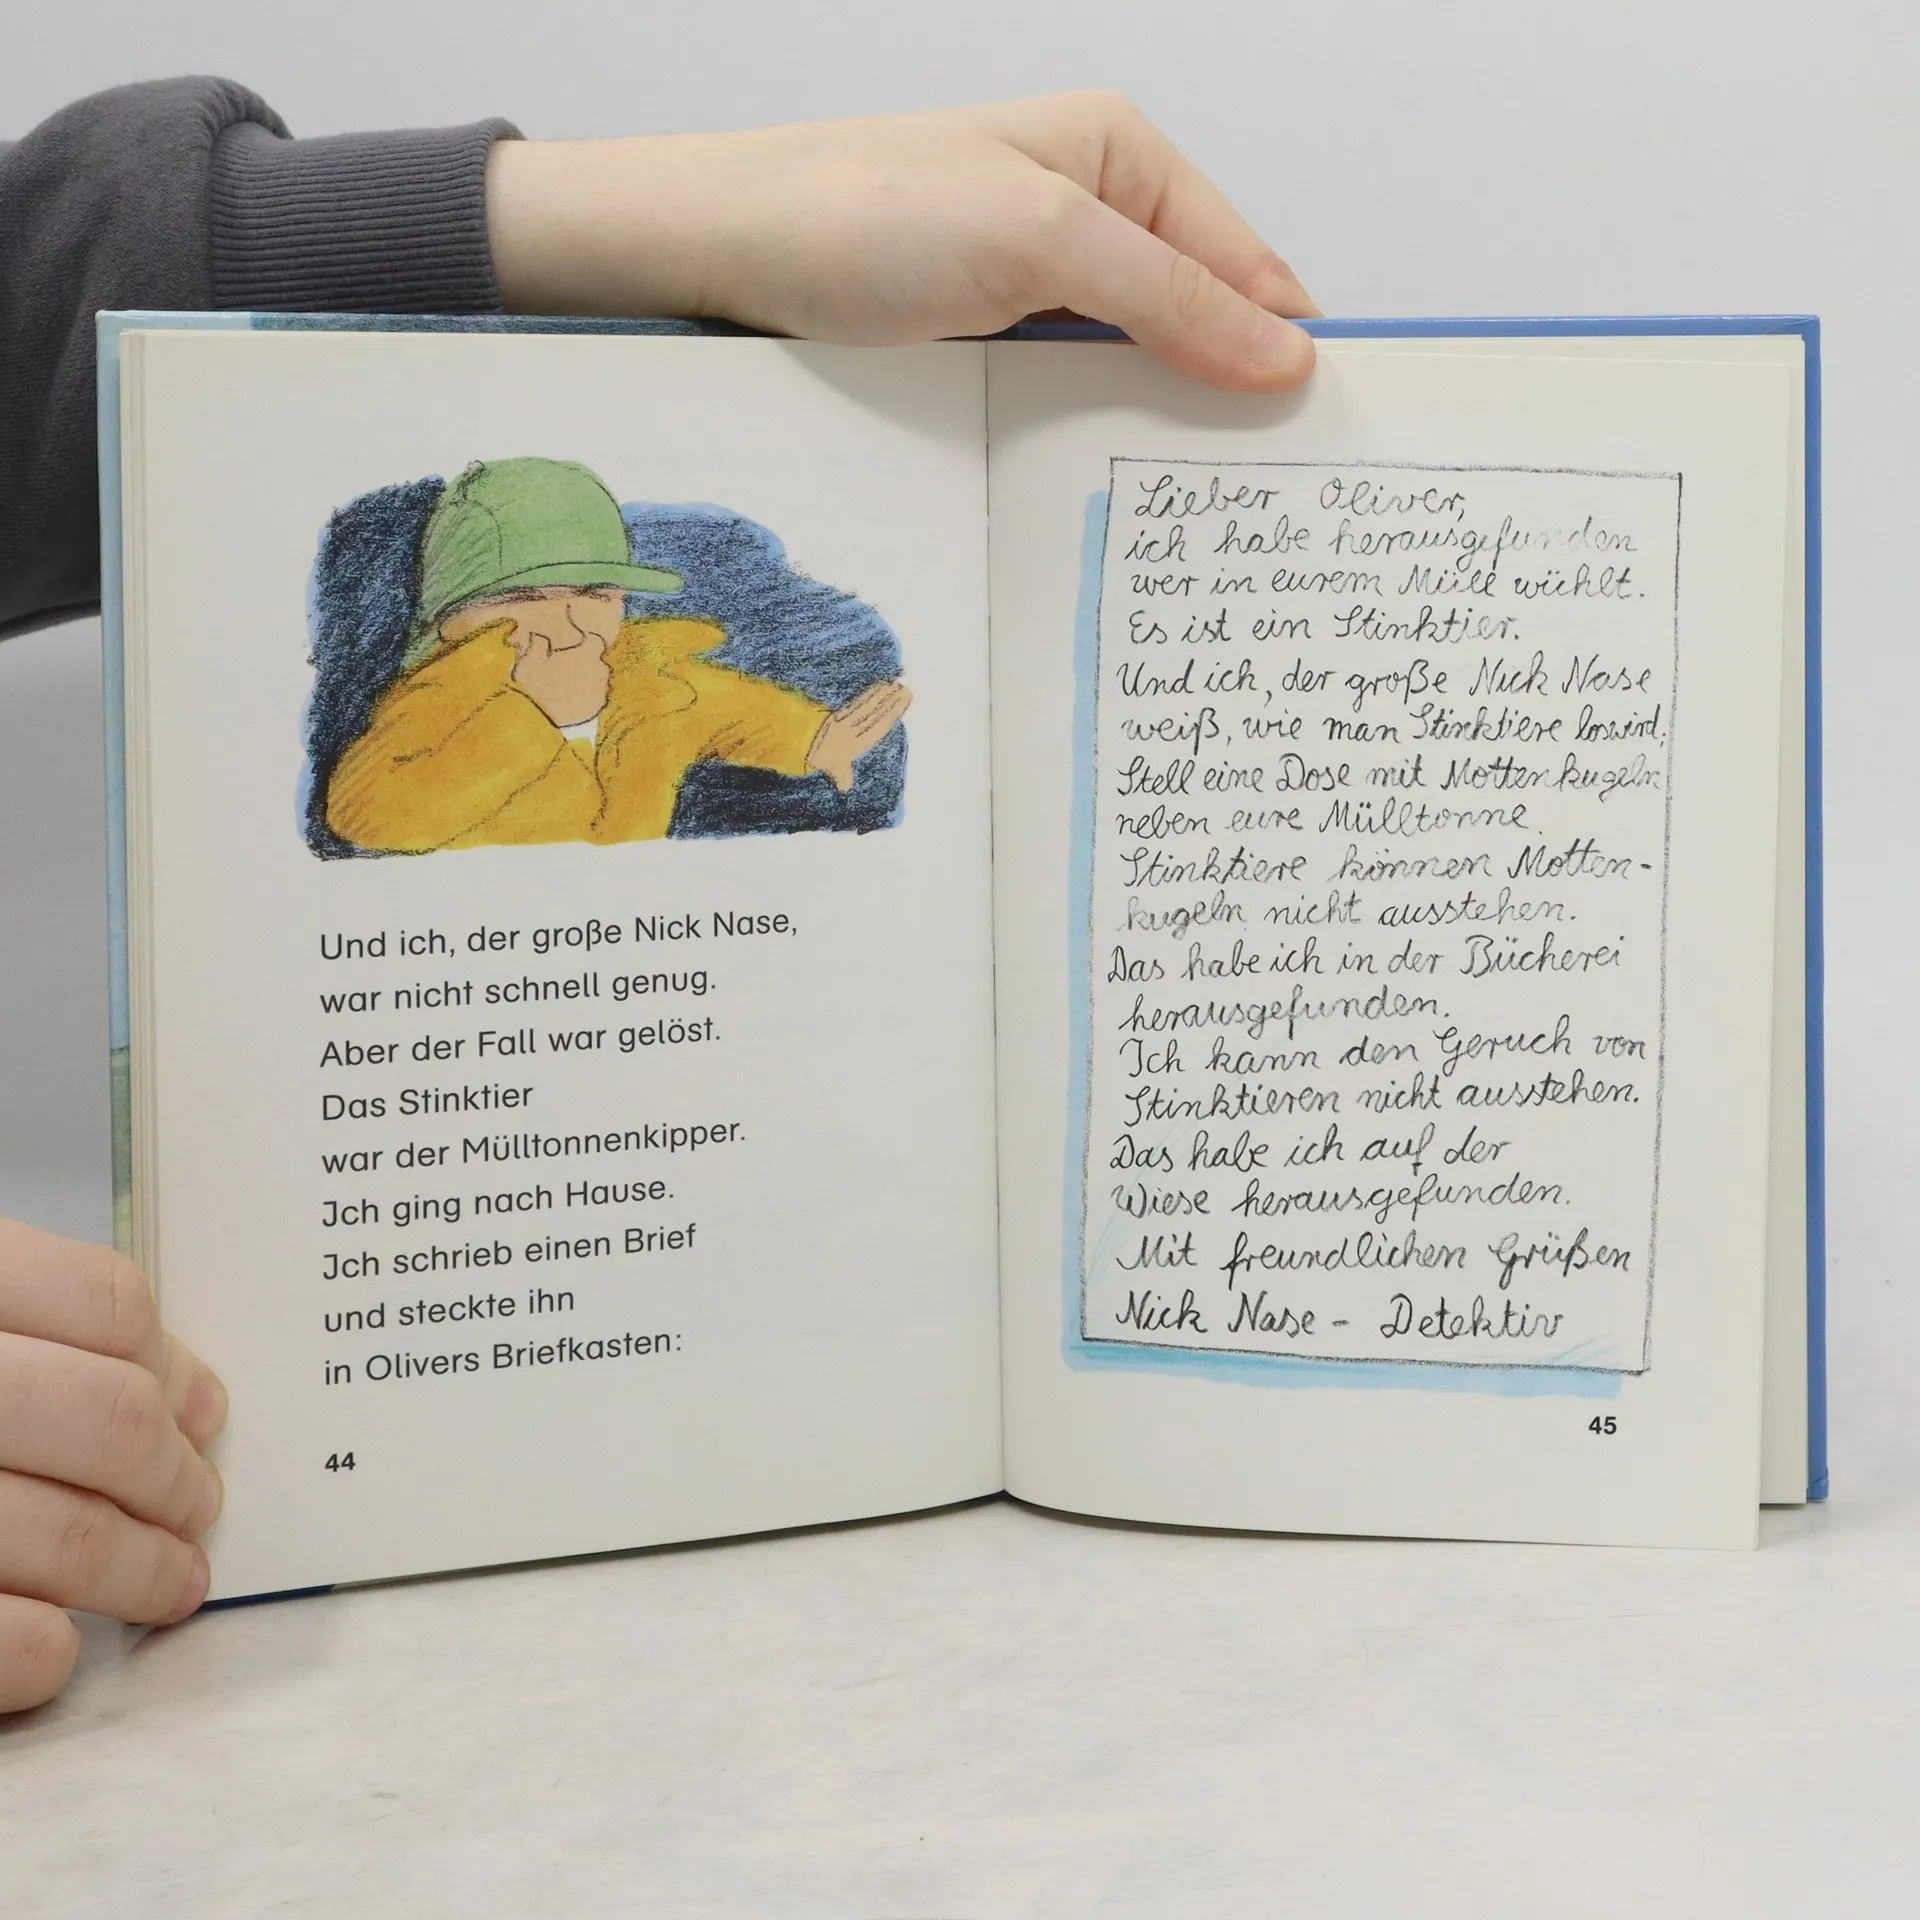 Und ich, der große Nick Nase,
war nicht schnell genug.
Aber der Fall war gelöst.
Das Stinktier
war der Mülltonnenkipper.
Jch ging nach Hause.
Jch schrieb einen Brief
und steckte ihn
in Olivers Briefkasten:
44
Lieber Oliver,
ich habe herausgefunden
wer in eurem Müll wühlt.
Es ist ein Stinktier.
Und ich, der große Nick Nase
weiß, wie man Stinktiere loswird:
Stell eine Dose mit Mottenkugeln
neben eure Mülltonne.
Stinktiere können Motten-
kugeln nicht ausstehen.
Das habe ich in der Bücherei
herausgefunden.
Ich kann den Geruch von
Stinktieren nicht ausstehen.
Das habe ich auf der
Wiese herausgefunden.
Mit freundlichen Grüßen
Nick Nase - Detektiv
45